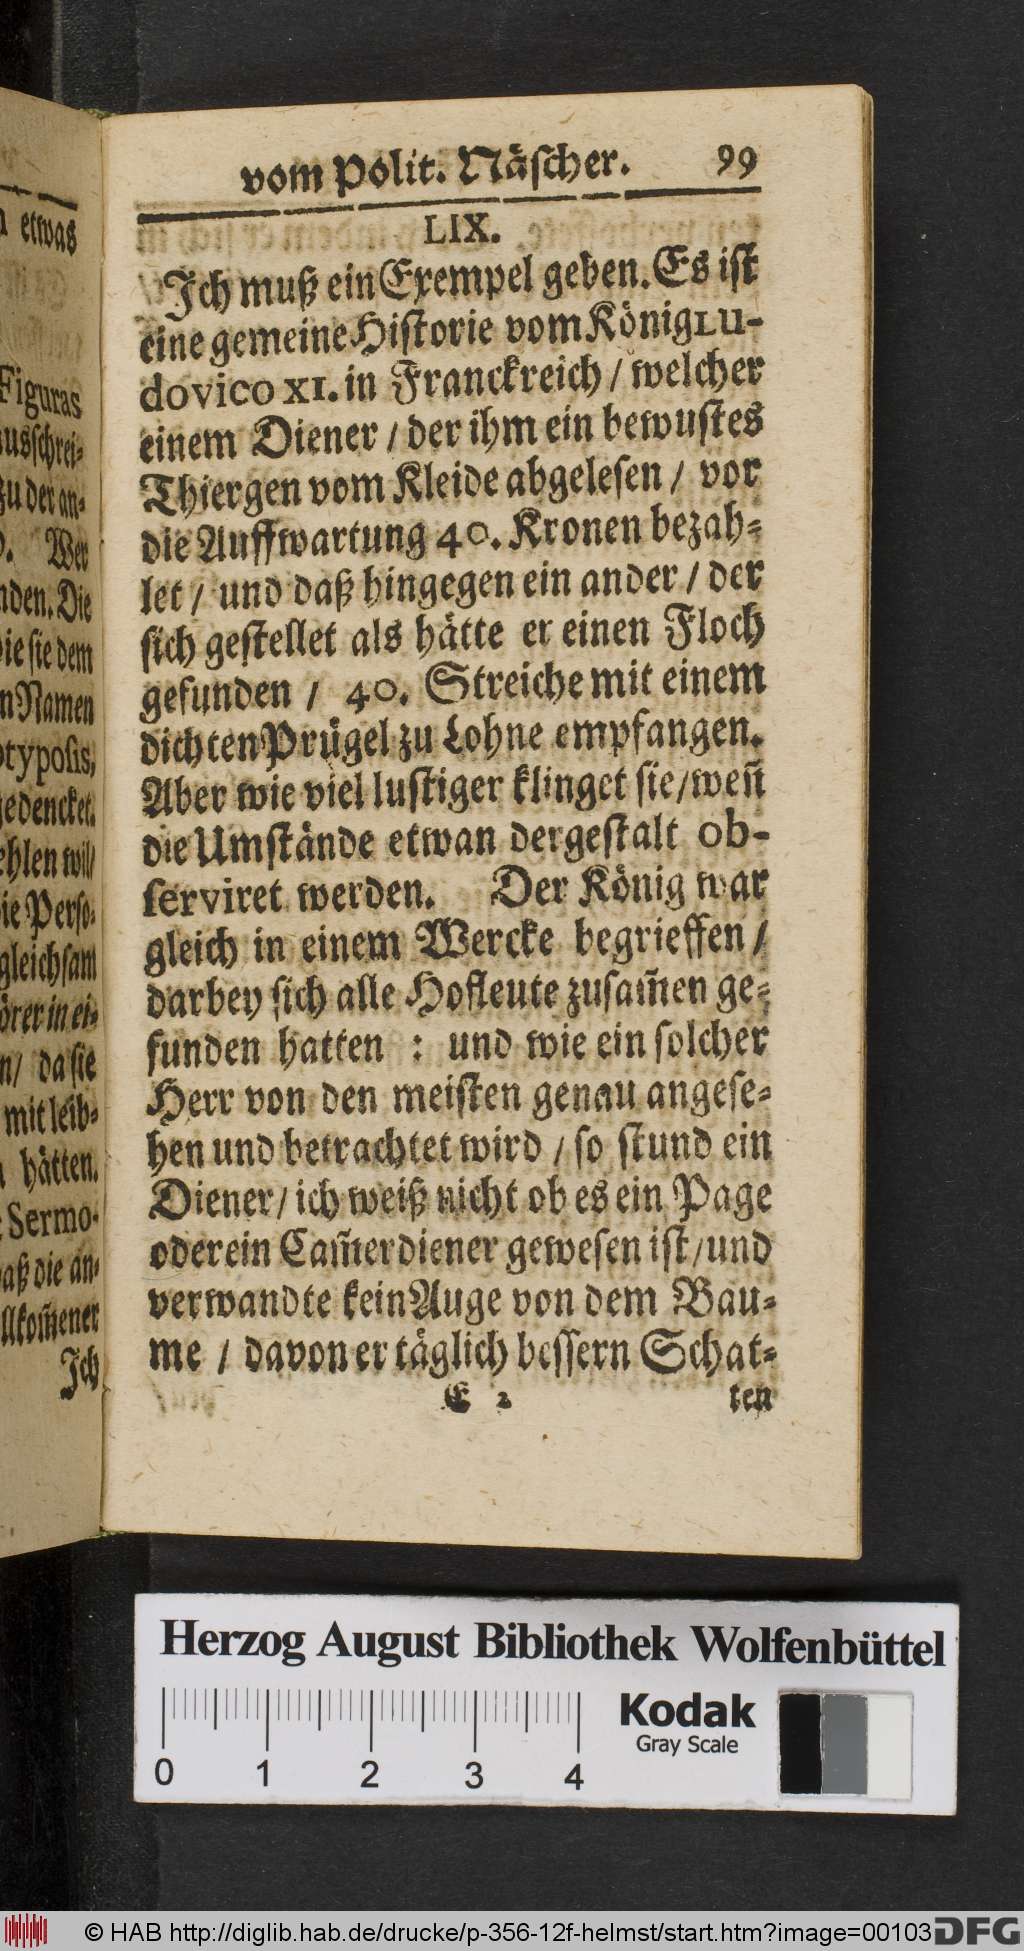 n etwas
Figuras
ausschrei-
zu der an-
Wer
nden. Die
wie sie dem
n Namen
otyposis,
gedencket.
ehlen will/
ie Perso-
gleichsam
örer in ei-
n/ da sie
mit leib-
hätten.
Sermo-
aß die an-
llkom̃ener
Ich
vom Polit. Näscher. 99
LIX.
Ich muß ein Exempel geben. Es ist
eine gemeine Historie vom König Lu-
dovico XI. in Franckreich / welcher
einem Diener / der ihm ein bewustes
Thiergen vom Kleide abgelesen / vor
die Auffwartung 40. Kronen bezah-
let / und daß hingegen ein ander / der
sich gestellet als hätte er einen Floch
gefunden / 40. Streiche mit einem
dichten Prügel zu Lohne empfangen.
Aber wie viel lustiger klinget sie / weñ
die Umstände etwan dergestalt ob-
serviret werden. Der König war
gleich in einem Wercke begrieffen /
darbey sich alle Hofleute zusam̃en ge-
funden hatten : und wie ein solcher
Herr von den meisten genau angese-
hen und betrachtet wird / so stund ein
Diener / ich weiß nicht ob es ein Page
oder ein Cam̃erdiener gewesen ist / und
verwandte kein Auge von dem Bau-
me / davon er täglich bessern Schat-
E 2 ten
Herzog August Bibliothek Wolfenbüttel
0 1 2 3 4
Kodak
Gray Scale
© HAB http://diglib.hab.de/drucke/p-356-12f-helmst/start.htm?image=00103
DFG